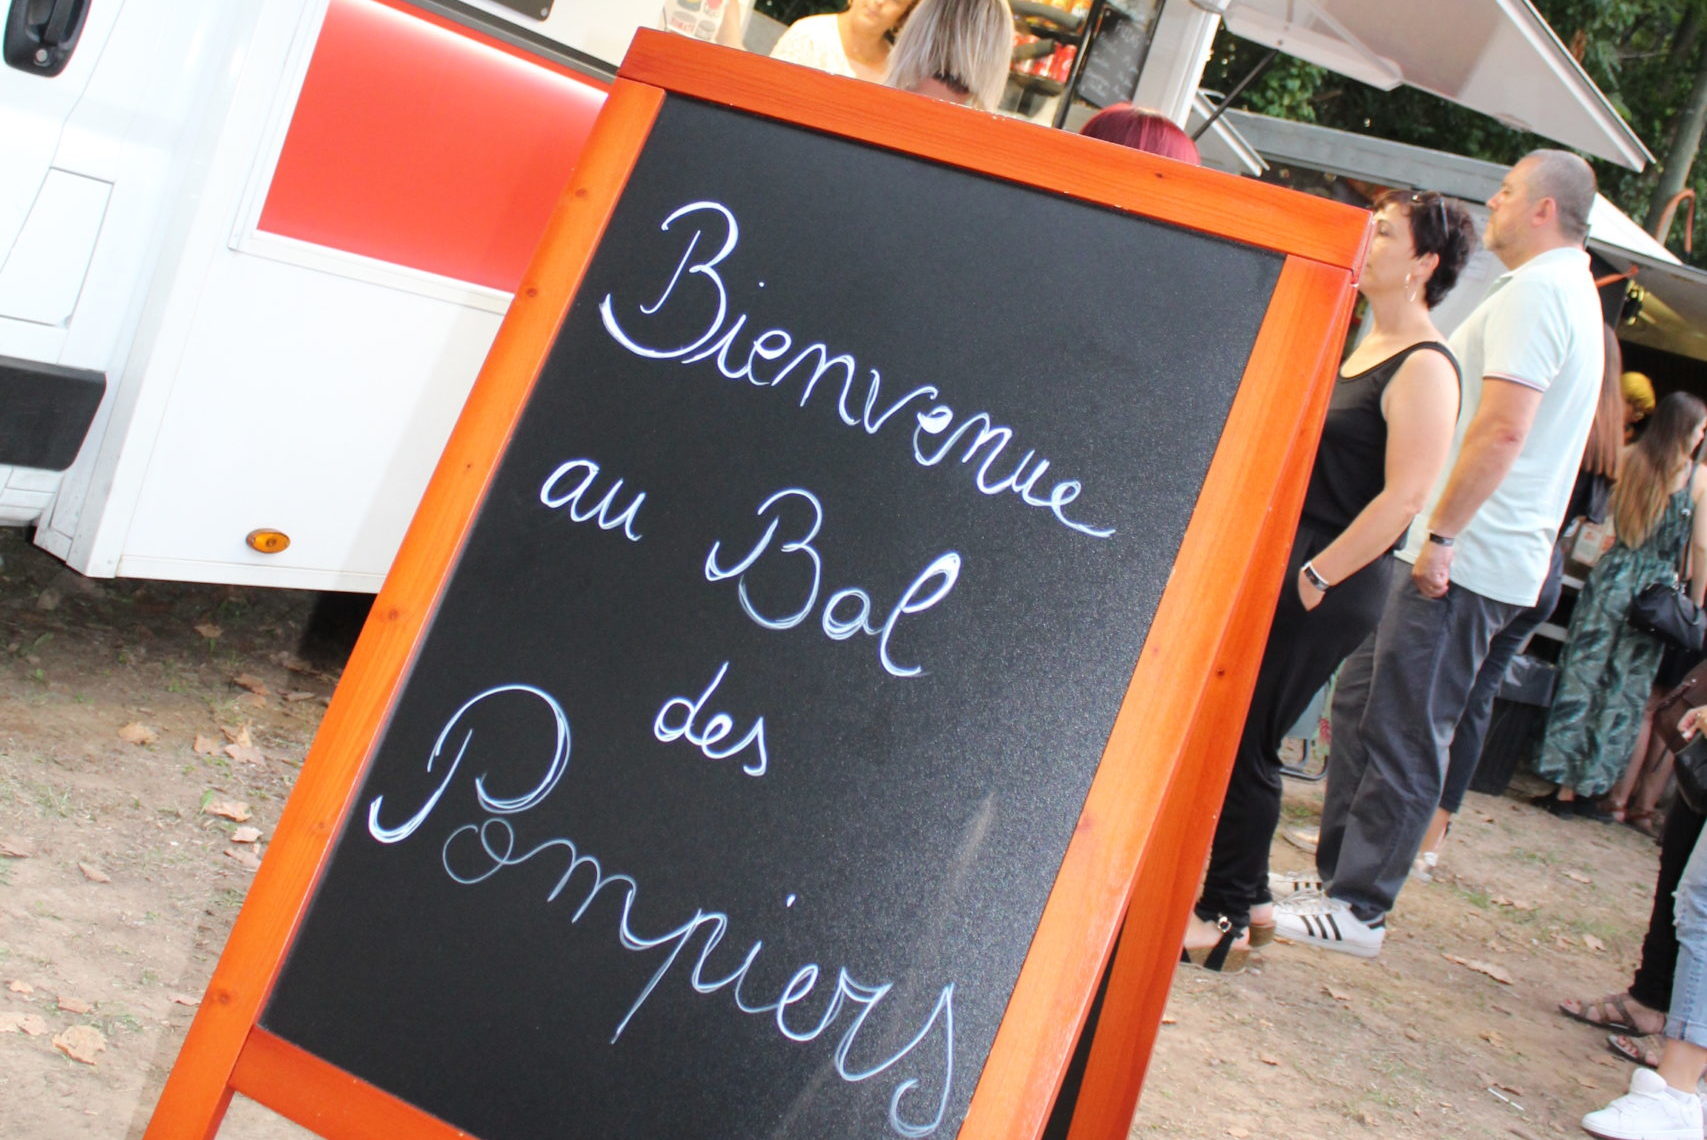 Bienvenue
au Bal
des
Pompiers